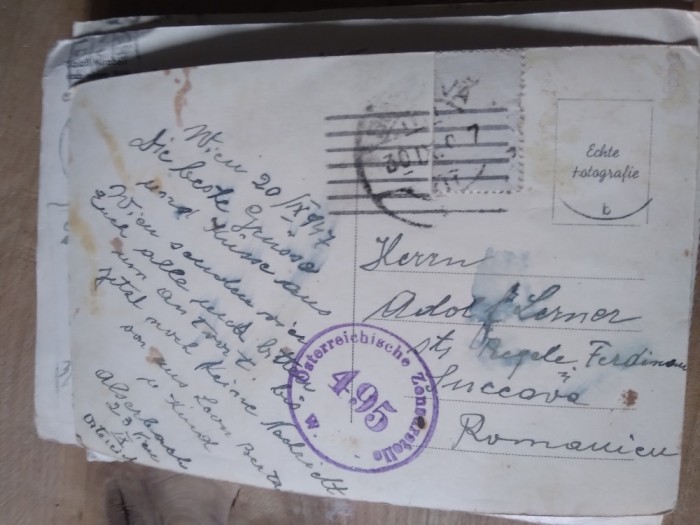 Wien 20/IX 947
Die beste Grüsse
und Küsse aus
Wien senden wir
Euch alle und bitten
um antwort. bis
jetzt noch keine Nachricht
von aus Leon Berta
u Kind
Alserbach
23
Echte
Fotografie
Herrn
Adolf Lerner
str Regele Ferdinand
Succeava
Romanien
Österreichische Zensurstelle
495
W.